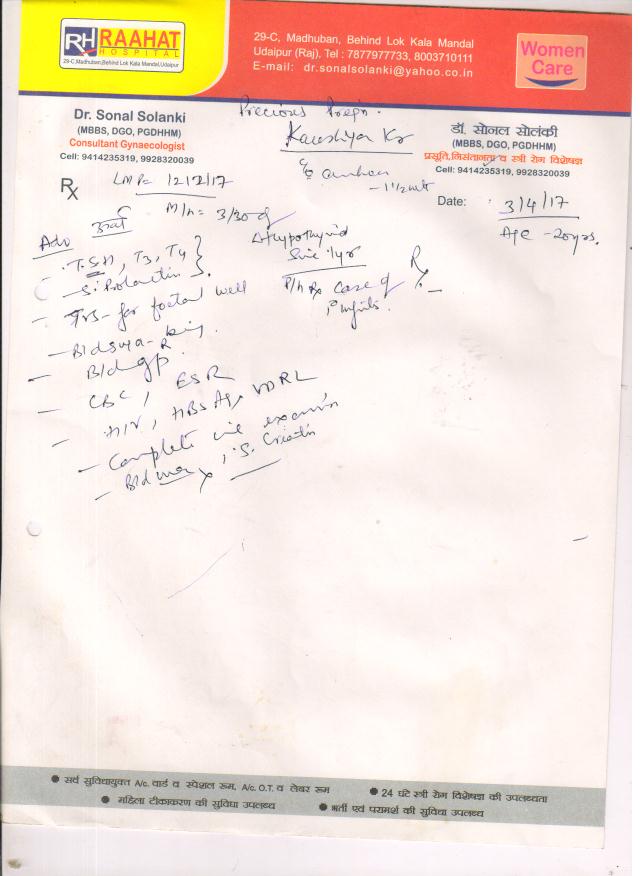 RH RAAHAT
HOSPITAL
29-C, Madhuban, Behind Lok Kala Mandal, Udaipur
29-C, Madhuban, Behind Lok Kala Mandal
Udaipur (Raj), Tel : 7877977733, 8003710111
E-mail: dr.sonalsolanki@yahoo.co.in
Women
Care
Precious Pregn.
Dr. Sonal Solanki
(MBBS, DGO, PGDHHM)
Consultant Gynaecologist
Cell: 9414235319, 9928320039
डॉ. सोनल सोलंकी
(MBBS, DGO, PGDHHM)
प्रसूति,निसंतानता व स्त्री रोग विशेषज्ञ
Cell: 9414235319, 9928320039
Rx
LMP= 12/2/17
- 1 1/2 mth
Date: 3/4/17
M/h = 3/30 d
Age - 20yrs.
Adv
Hypothyroid
since 1yr
T.SH, T3, T4
- S. Prolactin
case of
- for foetal well
being
- Bld suga - R
- Bld gp.
- CBC, ESR
- HIV, HBsAg, VDRL
- Complete examin
- Bld urea, S. Creatin
● सर्व सुविधायुक्त A/c. वार्ड व स्पेशल रूम, A/c. O.T. व लेबर रूम
● 24 घंटे स्त्री रोग विशेषज्ञ की उपलब्धता
● महिला टीकाकरण की सुविधा उपलब्ध
● भर्ती एवं परामर्श की सुविधा उपलब्ध